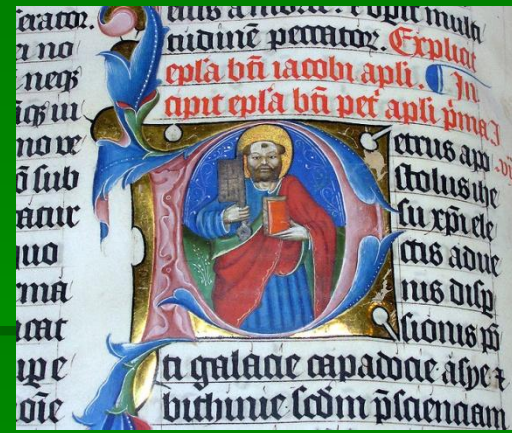 erator.
neqȝ
ō sub
atur
quo
rma
icat
eius a morte. ⁊ opit multi
tudinē peccator. Explicit
epl̄a bt̄i iacobi apl̄i. In
cipit epl̄a bt̄i pet̉ apl̄i p̄ma
etrus apo
stolus ihe
su xp̄i ele
ctis adue
nis disp̄
sionis pō
ti galacie capadocie asye ⁊
bithinie scd̄m p̄scienciam